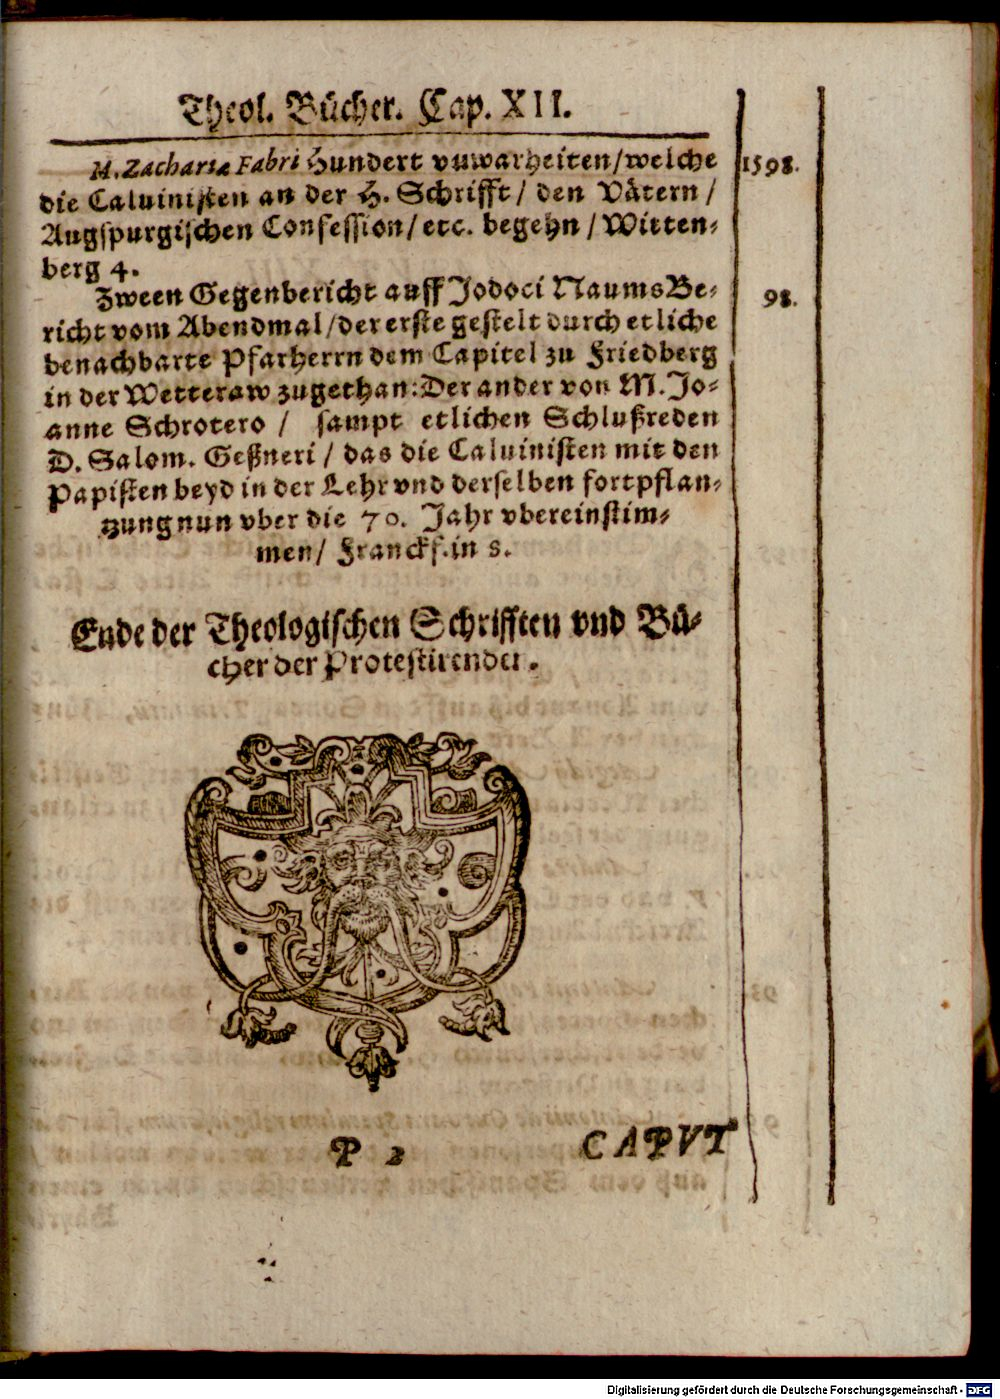 Theol. Bücher. Cap. XII.
M. Zachariæ Fabri Hundert vnwarheiten/welche 1598.
die Caluinisten an der H. Schrifft/ den Vätern/
Augspurgischen Confession/ etc. begehn/ Witten-
berg 4.
Zween Gegenbericht auff Jodoci Naums Be- 98.
richt vom Abendmal/der erste gestelt durch etliche
benachbarte Pfarherrn dem Capitel zu Friedberg
in der Wetteraw zugethan: Der ander von M. Jo-
anne Schrotero/ sampt etlichen Schlußreden
D. Salom. Geßneri/ das die Caluinisten mit den
Papisten beyd in der Lehr vnd derselben fortpflan-
tzung nun vber die 70. Jahr vbereinstim-
men/ Franckf. in 8.
Ende der Theologischen Schrifften vnd Bü-
cher der Protestirenden.
P 2 CAPVT
Digitalisierung gefördert durch die Deutsche Forschungsgemeinschaft - DFG